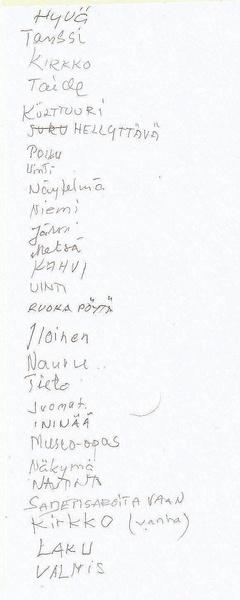 HYVÄ
Tanssi
KIRKKO
Taide
KULTTUURI
SURU HELLYTTÄVÄ
Polku
Uinti
Näytelmä
Niemi
Järvi
Metsä
KAHVI
UINTI
RUOKA PÖYTÄ
Iloinen
Nauru..
Tieto
Juomat.
ININÄÄ
Museo-opas
Näkymä
KIRKKO (vanha)
LAKU
VALMIS